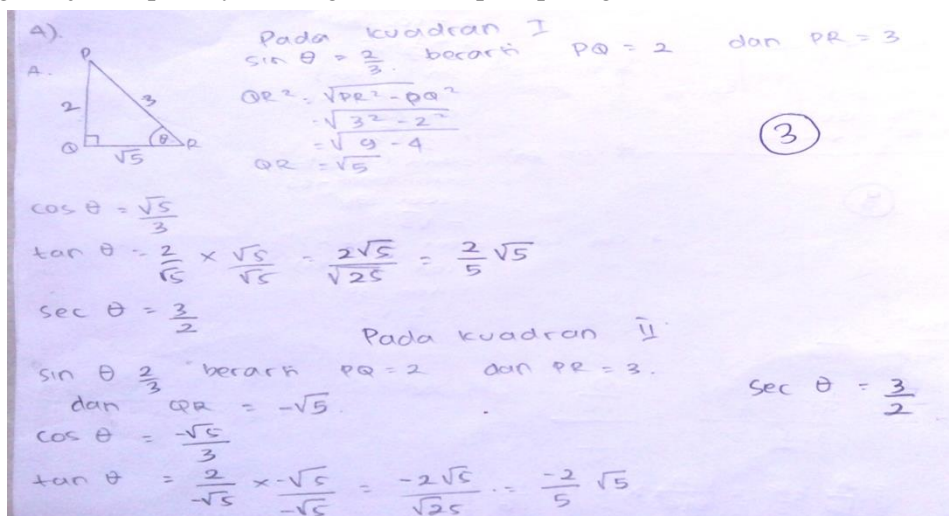 4).
Pada kuadran I
sin θ = 2/3. berarti PQ = 2 dan PR = 3
A.
P
2
3
Q
θ
R
√5
QR² = √PR² - PQ²
= √3² - 2²
= √9 - 4
QR = √5
3
cos θ = √5/3
tan θ = 2/√5 × √5/√5 = 2√5/√25 = 2/5 √5
sec θ = 3/2
Pada kuadran II
sin θ 2/3 berarti PQ = 2 dan PR = 3.
dan QR = -√5.
sec θ = 3/2
cos θ = -√5/3
tan θ = 2/-√5 × -√5/-√5 = -2√5/√25 = -2/5 √5